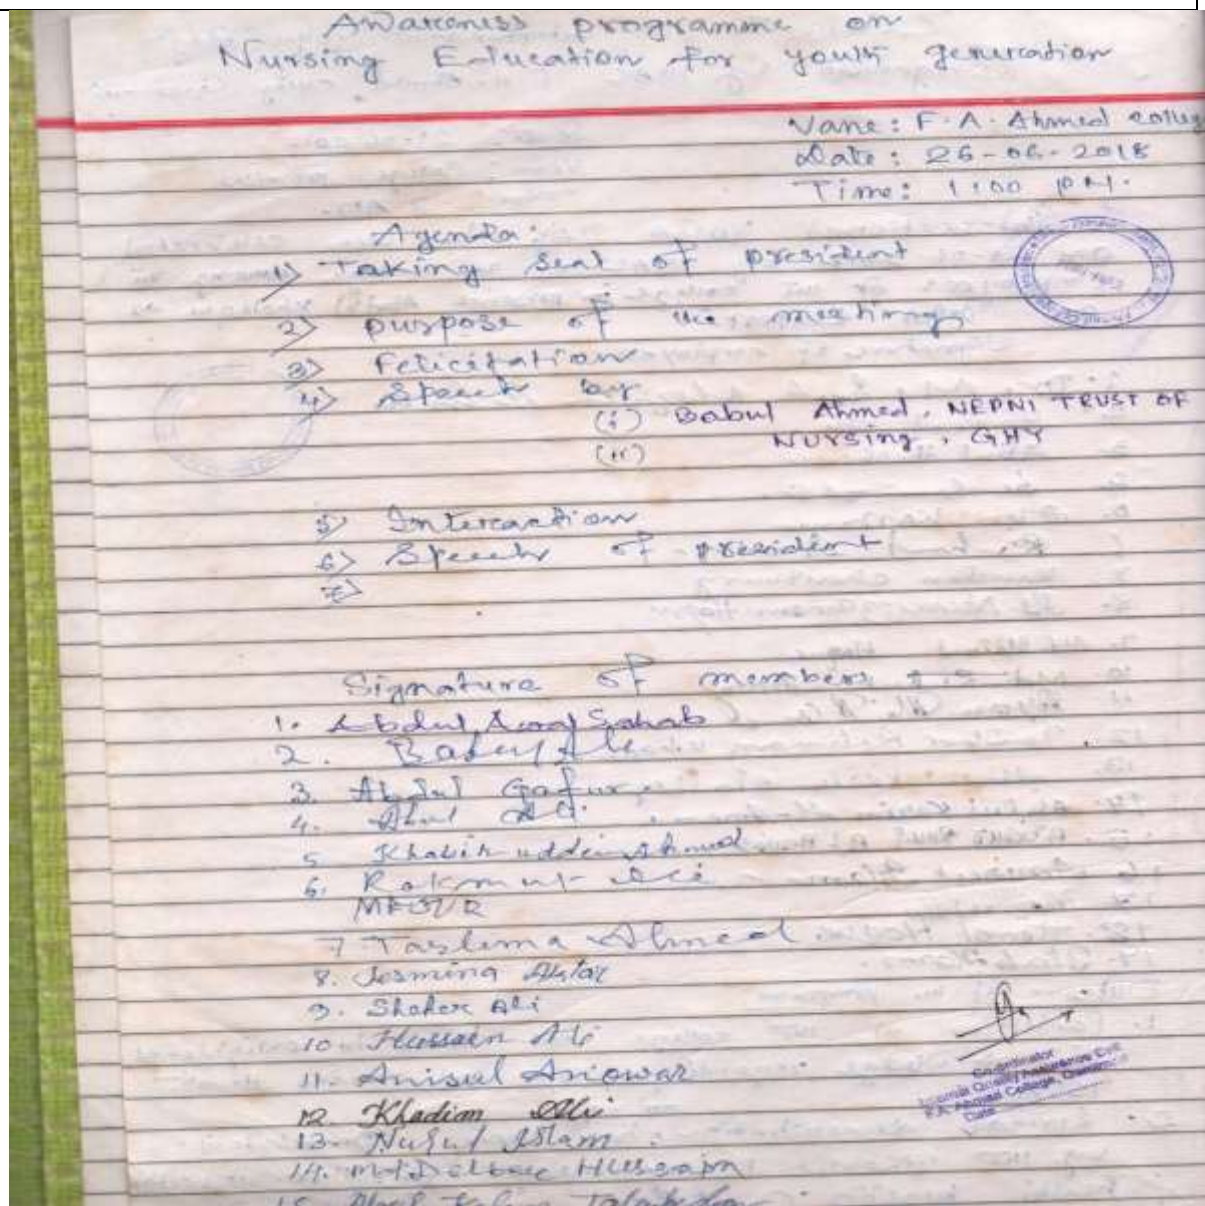 Awareness programme on
Nursing Education for youth generation
Vane: F.A. Ahmed colleg
Date: 26-06-2018
Time: 1:00 P.M.
Agenda:
1) Taking seat of president
2) purpose of the meeting
3) Felicitation
4) Speech by
(i) Babul Ahmed, NEPNI TRUST OF
NURSing, GHY
(ii)
5) Interaction
6) Speech of president
7)
Signature of members
1. Abdul Sahab
2.
3. Abdul Gafur
4. Abul Ali
5. Khabir uddin Ahmed
6.
7 Taslima Ahmed
8. Jesmina Aktar
9. Shaher Ali
10 Hussain Ali
11. Anisul Anowar
12 Khadim Ali
13. Nurul Islam
14. Md Hussain
15. Abul Kalam Talukdar
Co-ordinator
Internal Quality Assurance Cell
F.A. Ahmed College, Garoimari
Date